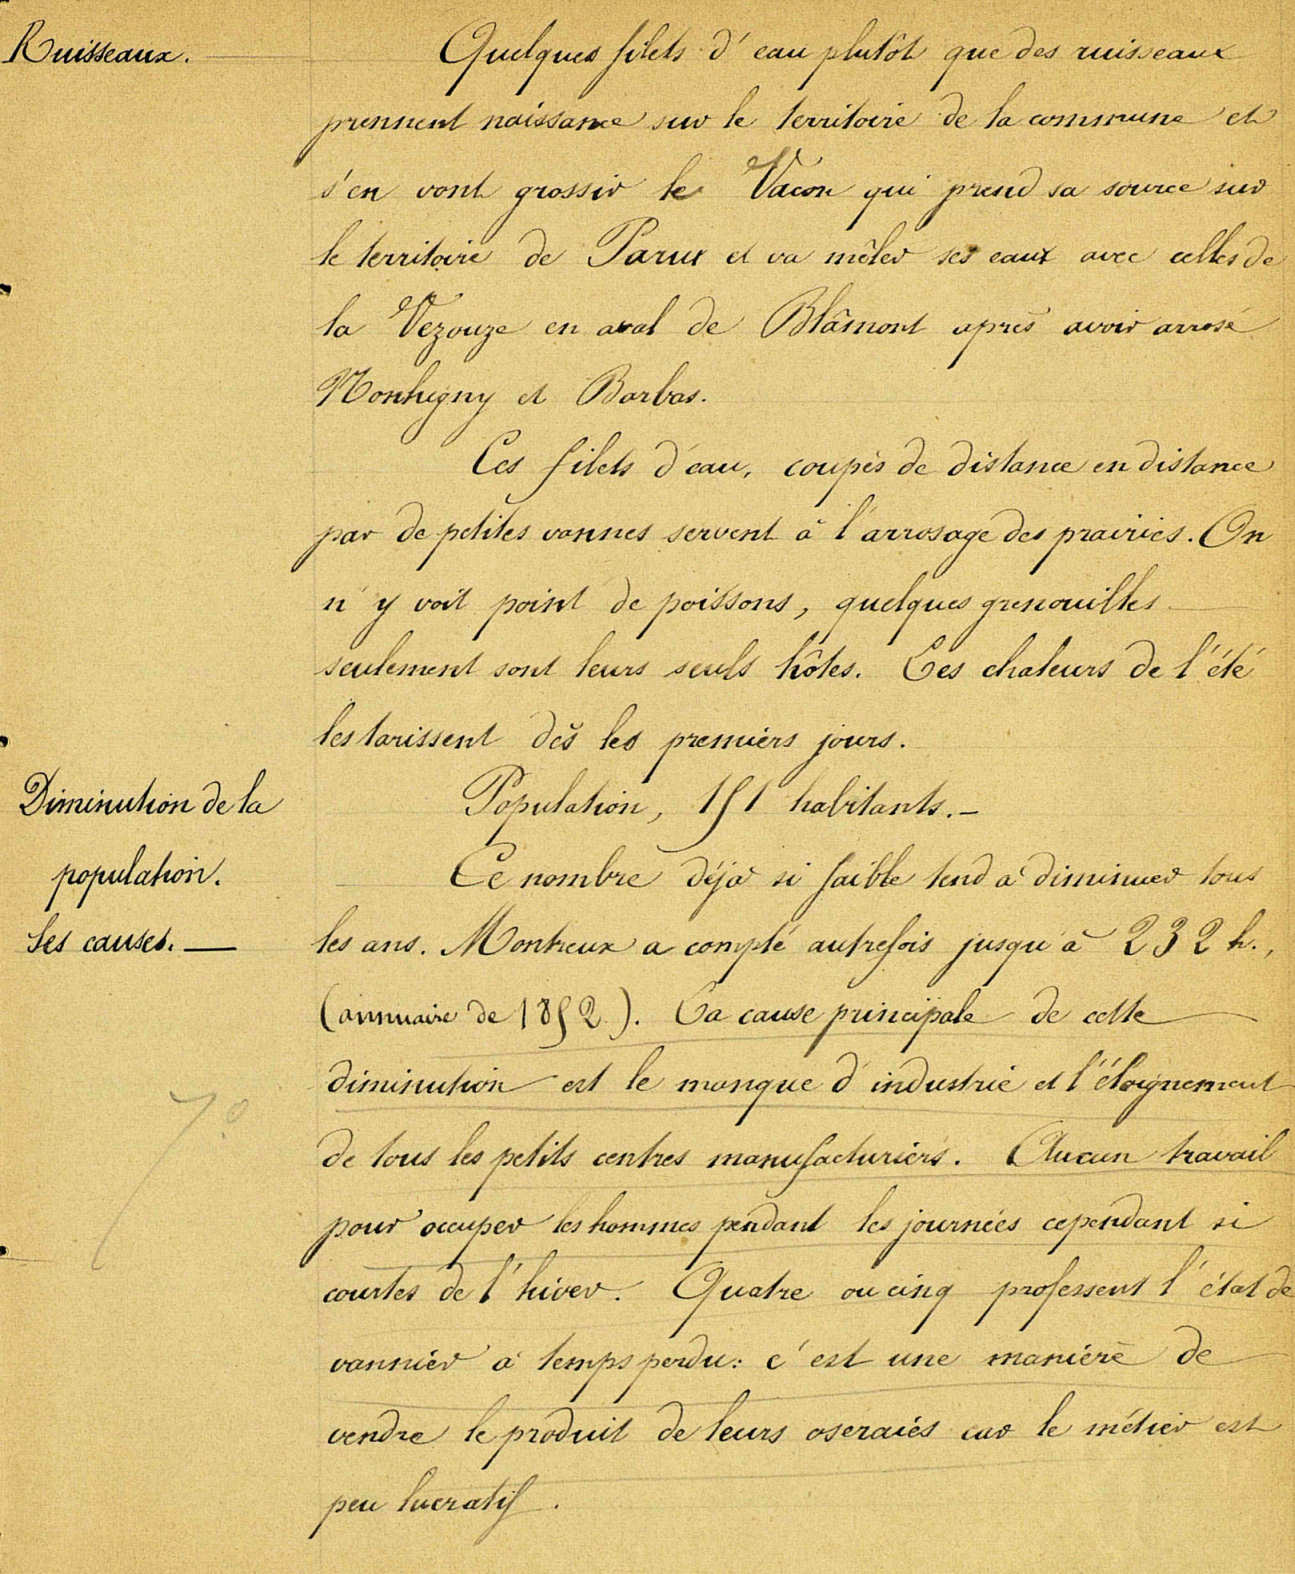 Ruisseaux.
Quelques filets d'eau plutôt que des ruisseaux
prennent naissance sur le territoire de la commune et
s'en vont grossir le Vacon qui prend sa source sur
le territoire de Parux et va mêler ses eaux avec celles de
la Vezouze en aval de Blâmont après avoir arrosé
Montigny et Barbas.
Ces filets d'eau, coupés de distance en distance
par de petites vannes servent à l'arrosage des prairies. On
n'y voit point de poissons, quelques grenouilles
seulement sont leurs seuls hôtes. Les chaleurs de l'été
les tarissent dès les premiers jours.
Diminution de la
population.
Ses causes. —
Population, 151 habitants. –
Ce nombre déjà si faible tend à diminuer tous
les ans. Montreux a compté autrefois jusqu'à 232 h.,
(annuaire de 1852). La cause principale de cette
diminution est le manque d'industrie et l'éloignement
de tous les petits centres manufacturiers. Aucun travail
pour occuper les hommes pendant les journées cependant si
courtes de l'hiver. Quatre ou cinq professent l'état de
vannier à temps perdu: c'est une manière de
vendre le produit de leurs oseraies car le métier est
peu lucratif.
7°